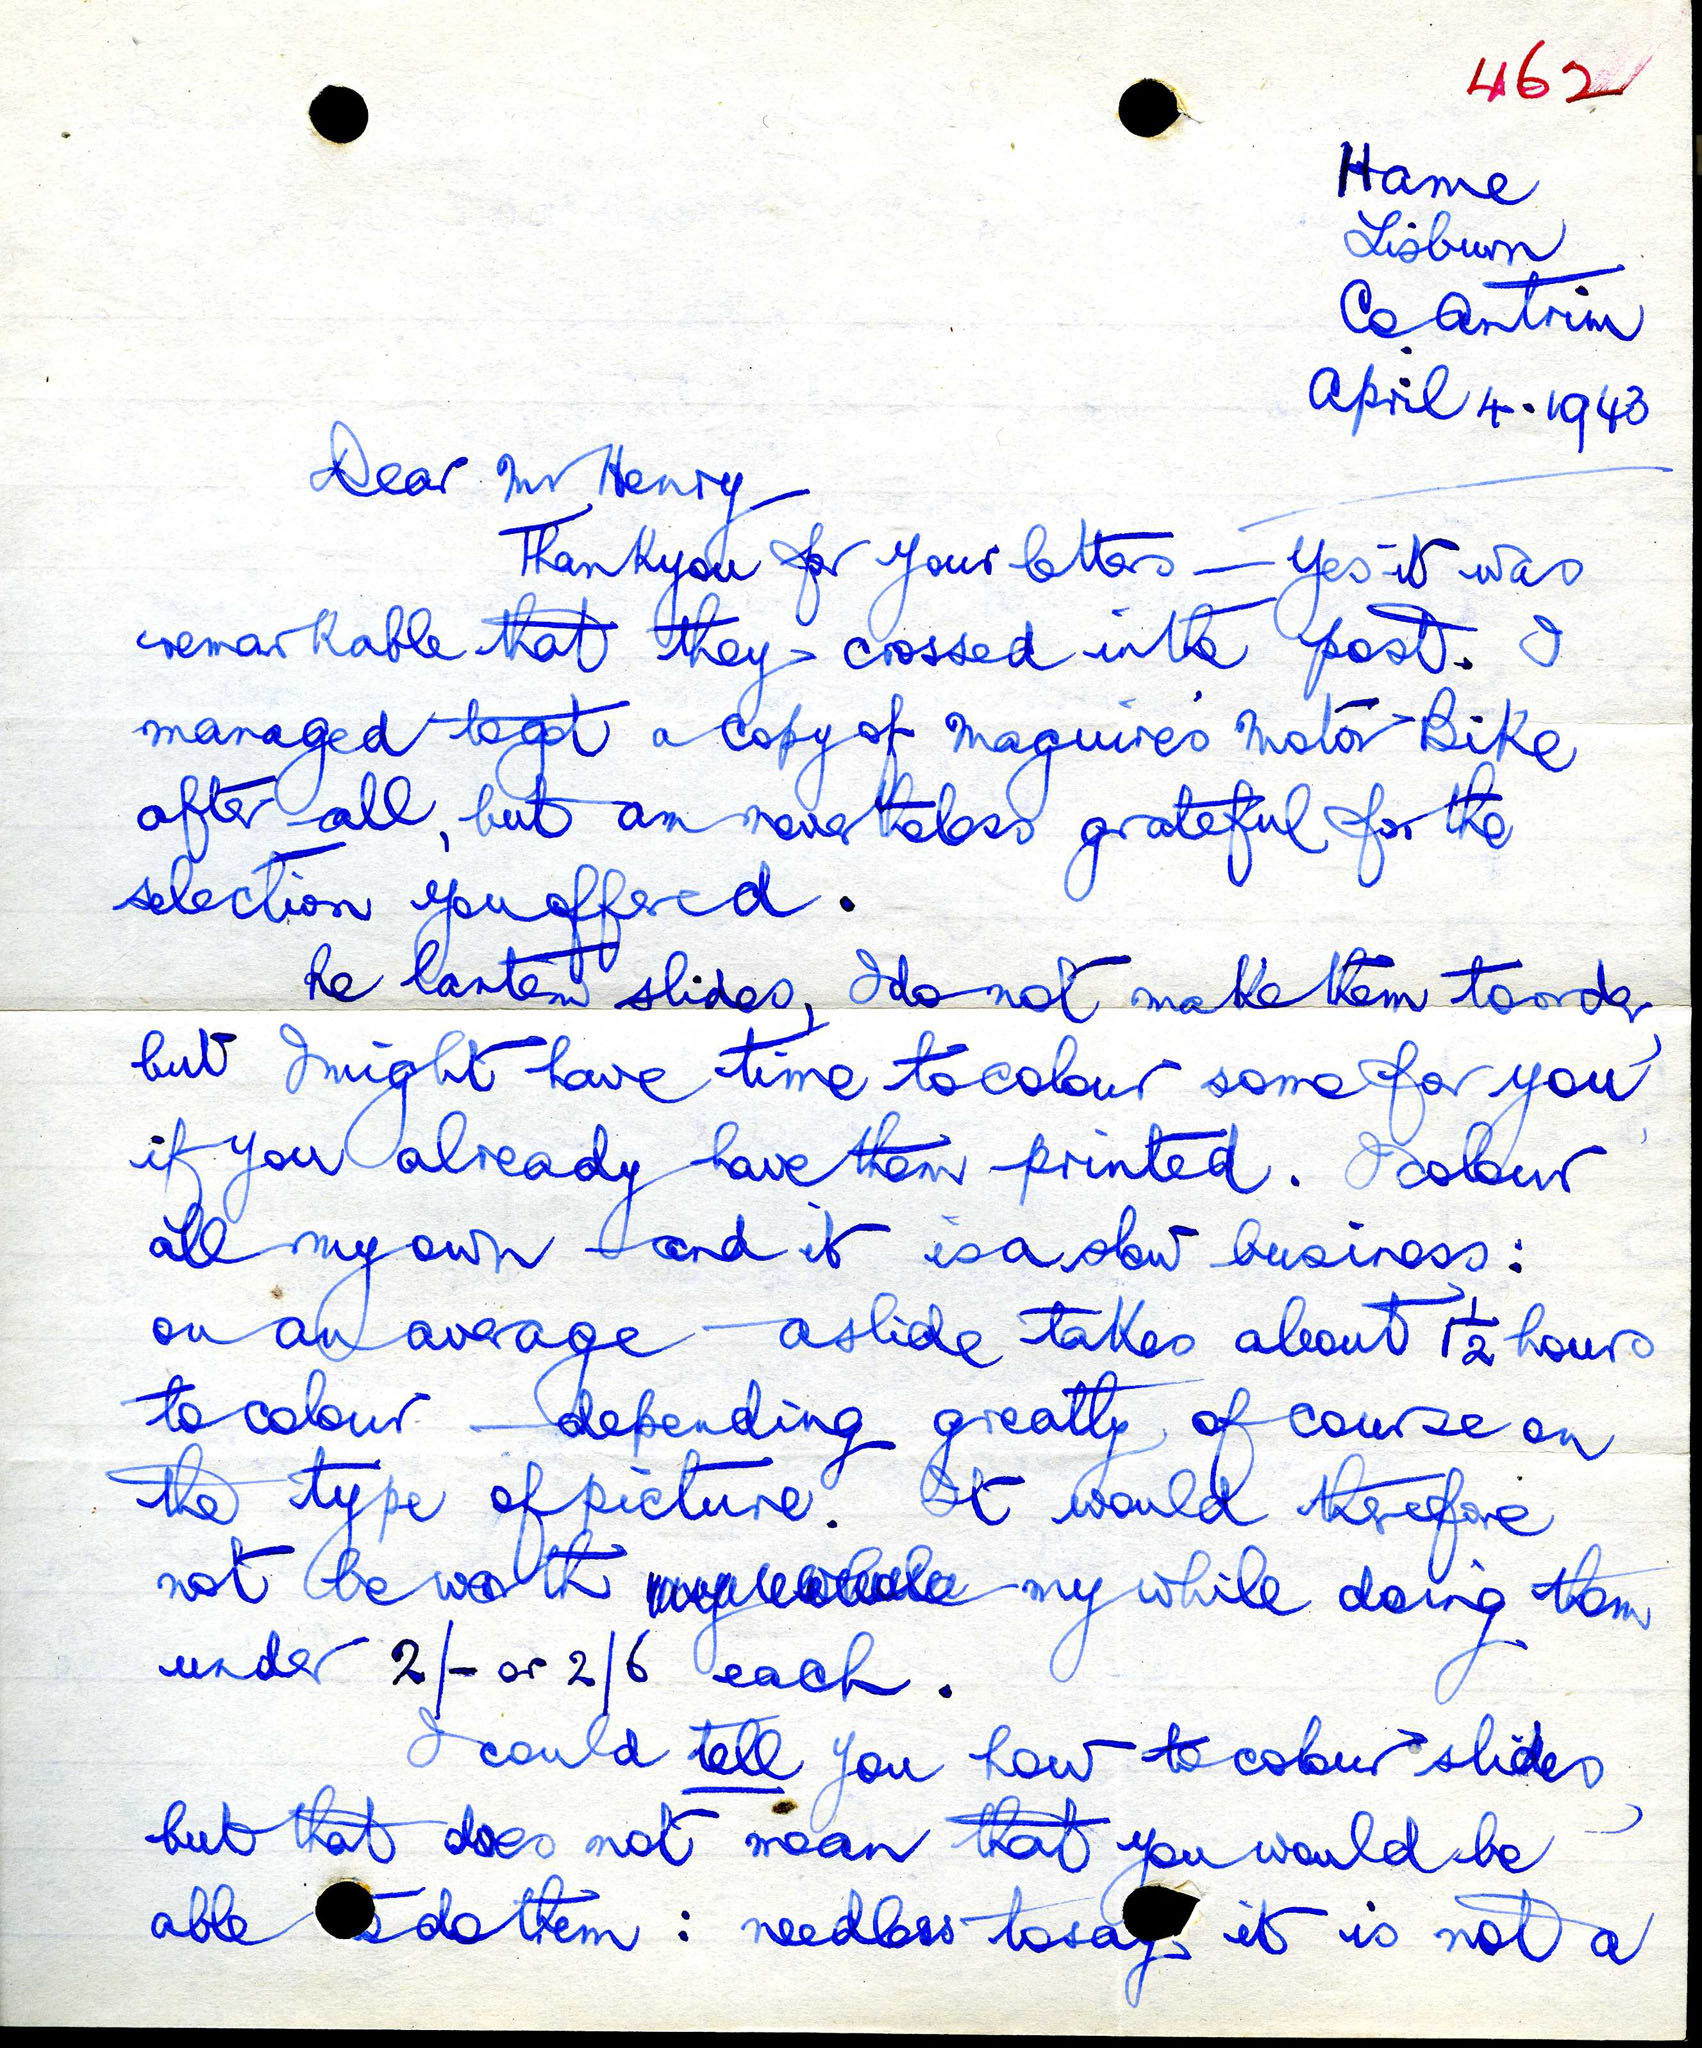 462
Hame
Lisburn
Co Antrim
April 4. 1943
Dear Mr Henry
Thank you for your letters — Yes it was
remarkable that they crossed in the post. I
managed to get a copy of Maguire's Motor Bike
after all, but am nevertheless grateful for the
selection you offered.
Re lantern slides, I do not make them to order,
but I might have time to colour some for you
if you already have them printed. I colour
all my own and it is a slow business:
on an average a slide takes about 1½ hours
to colour depending greatly of course on
the type of picture. It would therefore
not be worth my while doing them
under 2/- or 2/6 each.
I could tell you how to colour slides,
but that does not mean that you would be
able to do them: needless to say, it is not a